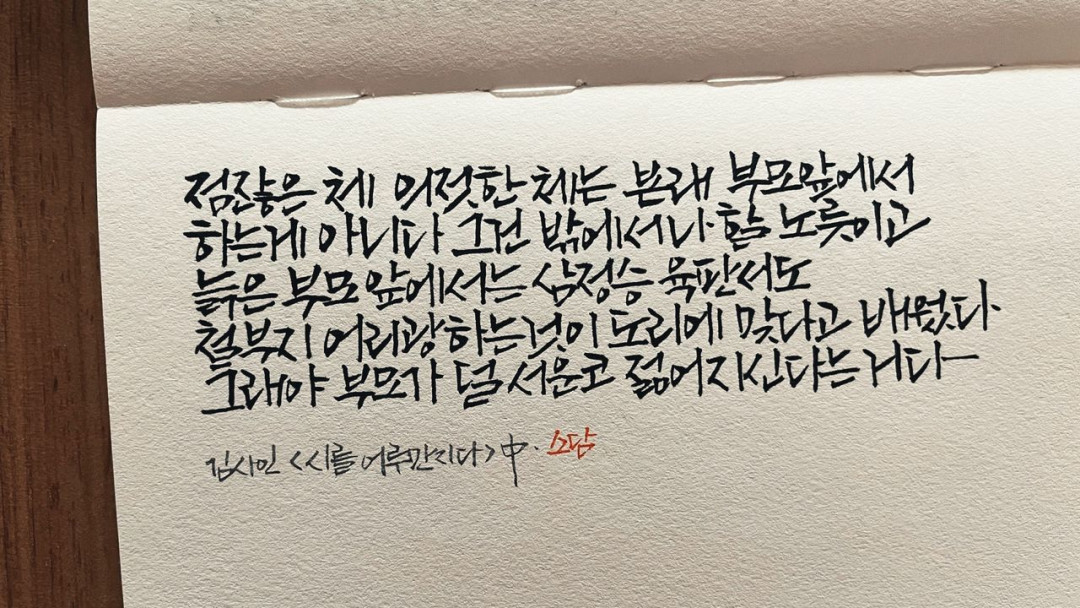 점잖은 체 의젓한 체는 본래 부모앞에서
하는게 아니다 그건 밖에서나 할 노릇이고
늙은 부모 앞에서는 삼정승 육판서도
철부지 어리광하는것이 도리에 맞다고 배웠다.
그래야 부모가 덜 서운코 젊어지신다는 거다—
김사인 <시를 어루만지다> 中. 소담